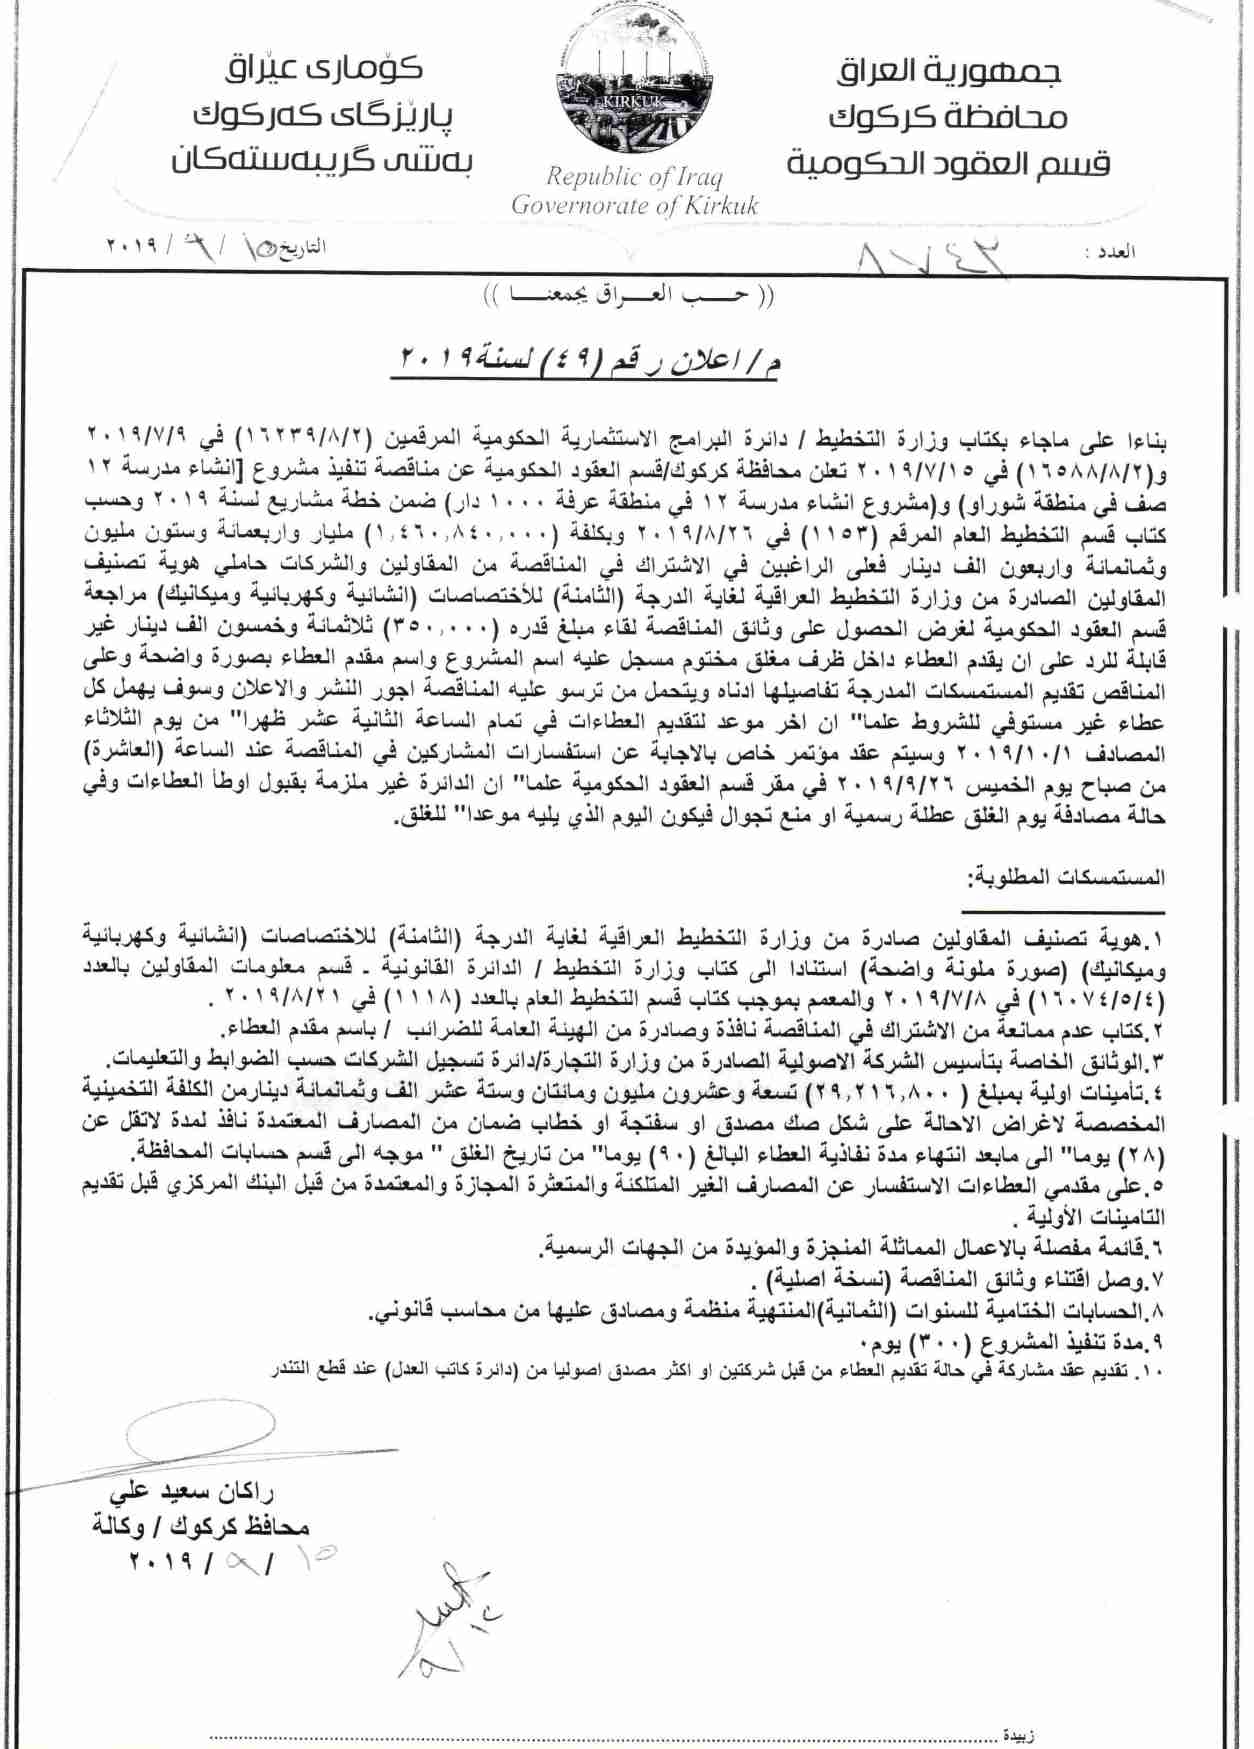 جمهورية العراق
محافظة كركوك
قسم العقود الحكومية
كۆماری عێراق
پارێزگای کەرکوک
بەشی گرێبەستەکان
KIRKUK
Republic of Iraq
Governorate of Kirkuk
العدد :
التاريخ ١٥ / ٩ / ٢٠١٩
(( حـــب العـــراق يجمعنـــا ))
م/ اعلان رقم (٤٩) لسنة ٢٠١٩
بناءا على ماجاء بكتاب وزارة التخطيط / دائرة البرامج الاستثمارية الحكومية المرقمين (١٦٢٣٩/٨/٢) في ٢٠١٩/٧/٩
و(١٦٥٨٨/٨/٢) في ٢٠١٩/٧/١٥ تعلن محافظة كركوك/قسم العقود الحكومية عن مناقصة تنفيذ مشروع [انشاء مدرسة ١٢
صف في منطقة شوراو) و(مشروع انشاء مدرسة ١٢ في منطقة عرفة ١٠٠٠ دار) ضمن خطة مشاريع لسنة ٢٠١٩ وحسب
كتاب قسم التخطيط العام المرقم (١١٥٣) في ٢٠١٩/٨/٢٦ وبكلفة (١,٤٦٠,٨٤٠,٠٠٠) مليار واربعمائة وستون مليون
وثمانمائة واربعون الف دينار فعلى الراغبين في الاشتراك في المناقصة من المقاولين والشركات حاملي هوية تصنيف
المقاولين الصادرة من وزارة التخطيط العراقية لغاية الدرجة (الثامنة) للأختصاصات (انشائية وكهربائية وميكانيك) مراجعة
قسم العقود الحكومية لغرض الحصول على وثائق المناقصة لقاء مبلغ قدره (٣٥٠,٠٠٠) ثلاثمائة وخمسون الف دينار غير
قابلة للرد على ان يقدم العطاء داخل ظرف مغلق مختوم مسجل عليه اسم المشروع واسم مقدم العطاء بصورة واضحة وعلى
المناقص تقديم المستمسكات المدرجة تفاصيلها ادناه ويتحمل من ترسو عليه المناقصة اجور النشر والاعلان وسوف يهمل كل
عطاء غير مستوفي للشروط علما" ان اخر موعد لتقديم العطاءات في تمام الساعة الثانية عشر ظهرا" من يوم الثلاثاء
المصادف ٢٠١٩/١٠/١ وسيتم عقد مؤتمر خاص بالاجابة عن استفسارات المشاركين في المناقصة عند الساعة (العاشرة)
من صباح يوم الخميس ٢٠١٩/٩/٢٦ في مقر قسم العقود الحكومية علما" ان الدائرة غير ملزمة بقبول اوطأ العطاءات وفي
حالة مصادفة يوم الغلق عطلة رسمية او منع تجوال فيكون اليوم الذي يليه موعدا" للغلق.
المستمسكات المطلوبة:
١.هوية تصنيف المقاولين صادرة من وزارة التخطيط العراقية لغاية الدرجة (الثامنة) للاختصاصات (انشائية وكهربائية
وميكانيك) (صورة ملونة واضحة) استنادا الى كتاب وزارة التخطيط / الدائرة القانونية - قسم معلومات المقاولين بالعدد
(١٦٠٧٤/٥/٤) في ٢٠١٩/٧/٨ والمعمم بموجب كتاب قسم التخطيط العام بالعدد (١١١٨) في ٢٠١٩/٨/٢١ .
٢.كتاب عدم ممانعة من الاشتراك في المناقصة نافذة وصادرة من الهيئة العامة للضرائب / باسم مقدم العطاء.
٣.الوثائق الخاصة بتأسيس الشركة الاصولية الصادرة من وزارة التجارة/دائرة تسجيل الشركات حسب الضوابط والتعليمات.
٤.تأمينات اولية بمبلغ (٢٩,٢١٦,٨٠٠) تسعة وعشرون مليون ومائتان وستة عشر الف وثمانمائة دينارمن الكلفة التخمينية
المخصصة لاغراض الاحالة على شكل صك مصدق او سفتجة او خطاب ضمان من المصارف المعتمدة نافذ لمدة لاتقل عن
(٢٨) يوما" الى مابعد انتهاء مدة نفاذية العطاء البالغ (٩٠) يوما" من تاريخ الغلق " موجه الى قسم حسابات المحافظة.
٥.على مقدمي العطاءات الاستفسار عن المصارف الغير المتلكنة والمتعثرة المجازة والمعتمدة من قبل البنك المركزي قبل تقديم
التامينات الأولية .
٦.قائمة مفصلة بالاعمال المماثلة المنجزة والمؤيدة من الجهات الرسمية.
٧.وصل اقتناء وثائق المناقصة (نسخة اصلية) .
٨.الحسابات الختامية للسنوات (الثمانية)المنتهية منظمة ومصادق عليها من محاسب قانوني.
٩.مدة تنفيذ المشروع (٣٠٠) يوم٠
١٠. تقديم عقد مشاركة في حالة تقديم العطاء من قبل شركتين او اكثر مصدق اصوليا من (دائرة كاتب العدل) عند قطع التندر
راكان سعيد علي
محافظ كركوك / وكالة
١٥ / ٩ / ٢٠١٩
زبيدة